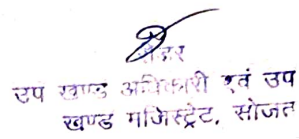 उप खण्ड अधिकारी एवं उप
खण्ड मजिस्ट्रेट, सोजत